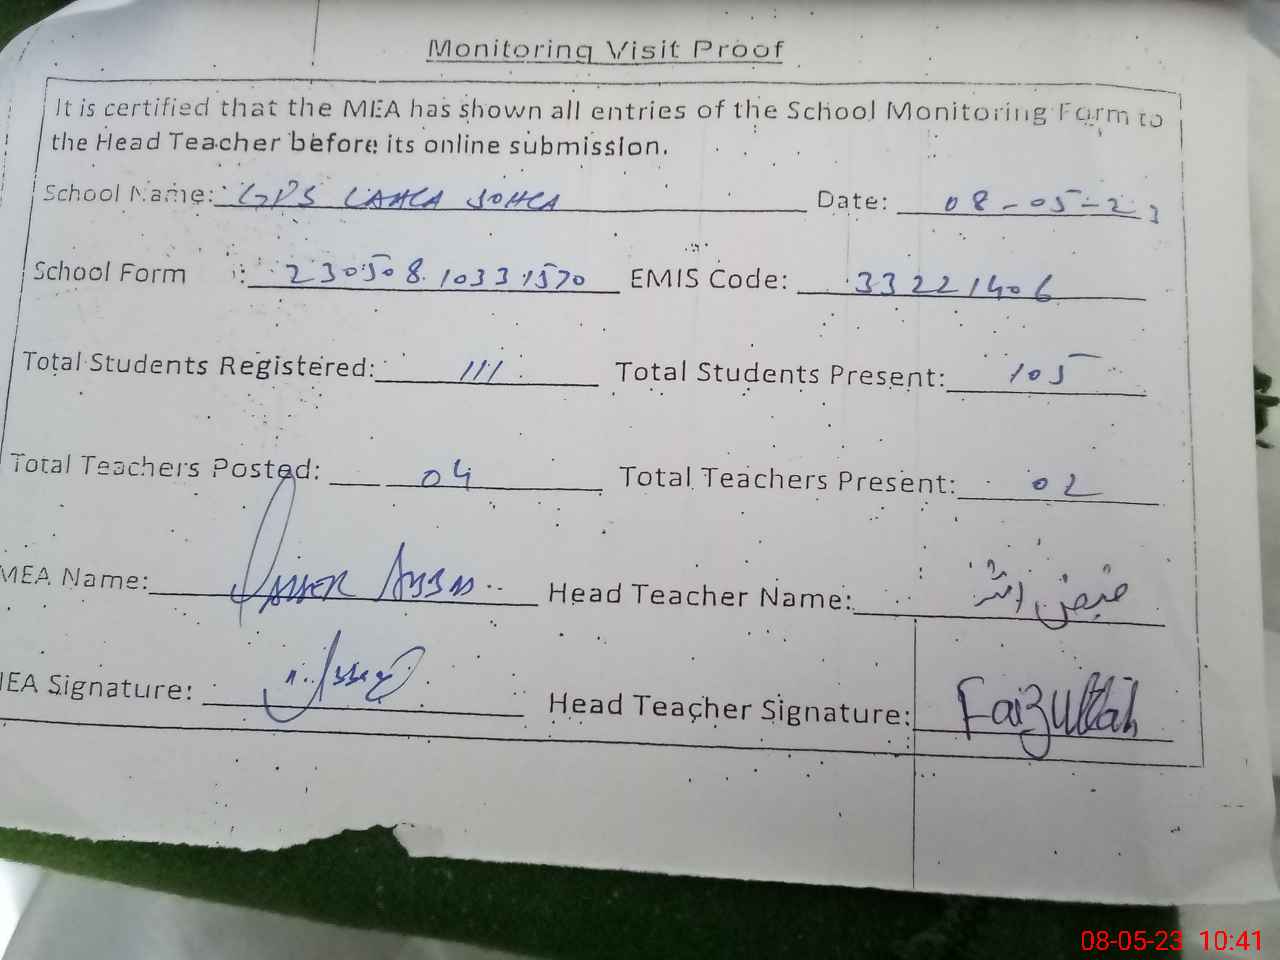 Monitoring Visit Proof
It is certified that the MEA has shown all entries of the School Monitoring Form to
the Head Teacher before its online submission.
School Name: GPS LAHLA JOHLA Date: 08-05-23
School Form : 230508 10331570 EMIS Code: 33221406
Total Students Registered: 111 Total Students Present: 105
Total Teachers Posted: 04 Total Teachers Present: 02
MEA Name: Head Teacher Name: فیض اللہ
EA Signature: Head Teacher Signature: Faizullah
08-05-23 10:41